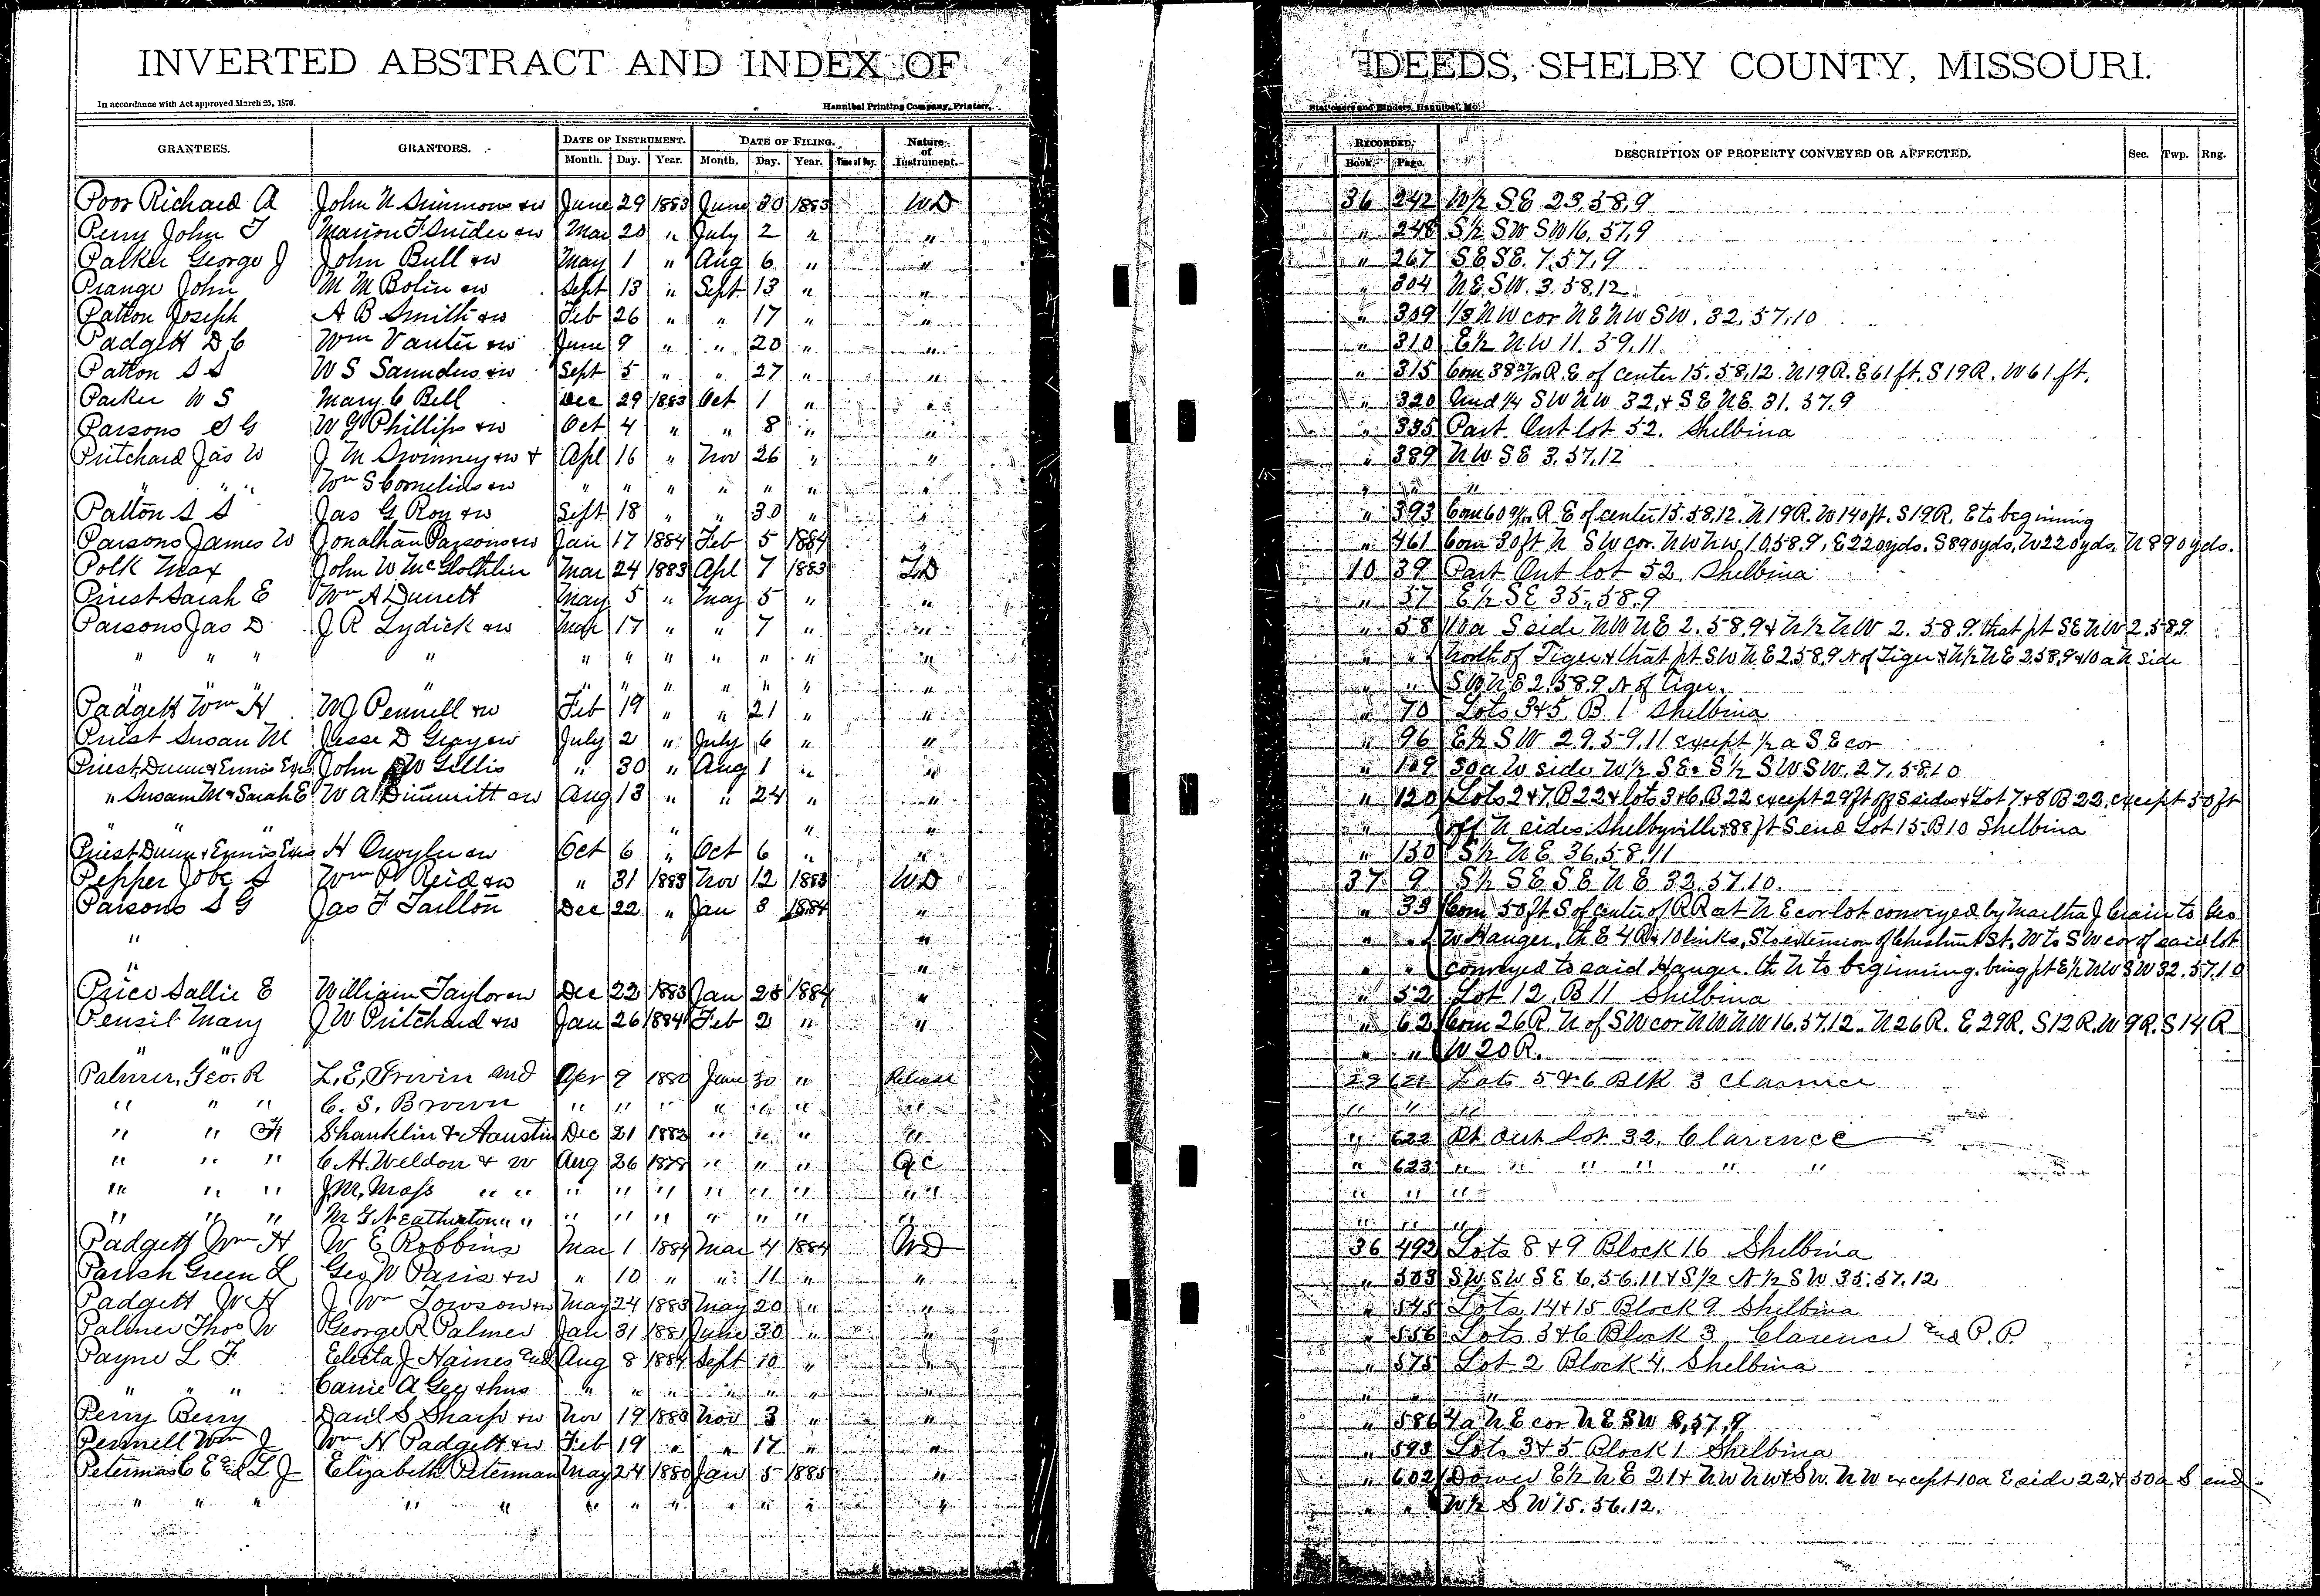 INVERTED ABSTRACT AND INDEX OF DEEDS, SHELBY COUNTY, MISSOURI.
In accordance with Act approved March 25, 1870. Hannibal Printing Company, Printers, Stationers and Binders, Hannibal, Mo.
GRANTEES. GRANTORS. DATE OF INSTRUMENT. DATE OF FILING. Nature of Instrument. RECORDED. DESCRIPTION OF PROPERTY CONVEYED OR AFFECTED. Sec. Twp. Rng.
Month. Day. Year. Month. Day. Year. Time of Day. Book. Page.
Poor Richard A John N Simmons & w June 29 1883 June 30 1883 WD 36 242 W½ SE 23.58.9
Perry John T Marion F Snider & w Mar 20 " July 2 " " " 248 S½ SW SW 16.57.9
Palker George J John Bull & w May 1 " Aug 6 " " " 267 SE SE. 7.57.9
Prange John M M Bolin & w Sept 13 " Sept 13 " " " 304 NE SW. 3.58.12
Patton Joseph A B Smith & w Feb 26 " " 17 " " " 309 1/3 NW cor NE NW SW. 32.57.10
Padgett D C Wm Vanter & w June 9 " " 20 " " " 310 E½ NW 11.59.11
Patton S S W S Saunders & w Sept 5 " " 27 " " " 315 Com 38 R. E of center 15.58.12. N 19 R. E 61 ft. S 19 R. W 61 ft.
Parker W S Mary C Bell Dec 29 1883 Oct 1 " " " 320 Und ¼ SW NW 32. & SE NE. 31.57.9
Parsons S G W J Phillips & w Oct 4 " " 8 " " " 335 Part Out lot 52. Shelbina
Pritchard Jas W J M Swinney & w & Apl 16 " Nov 26 " " " 389 NW SE 3.57.12
" " " Wm S Cornelius & w " " " " " " " " " "
Patton S S Jas G Roy & w Sept 18 " " 30 " " " 393 Com 60 R E of center 15.58.12. N 19 R. W 140 ft. S 19 R. E to beginning
Parsons James W Jonathan Parsons & w Jan 17 1884 Feb 5 1884 " " 461 Com 30 ft N SW cor. NW NW 10.58.9, E 220 yds. S 890 yds. W 220 yds. N 890 yds.
Polk Max John W McGlothlin Mar 24 1883 Apl 7 1883 TD 10 39 Part Out lot 52 Shelbina
Priest Sarah E Wm A Durrett May 5 " May 5 " " " 57 E½ SE 35.58.9
Parsons Jas D J R Lydick & w Mar 17 " " 7 " " " 58 10a S side NW NE 2.58.9 & N½ NW 2.58.9. that pt SE NW 2.58.9
" " " " " " " " " " " " " North of Tiger & that pt SW NE 2.58.9 N of Tiger & N½ NE 2.58.9 & 10 a N side
" " " " " " " " " " SW NE 2.58.9 N of Tiger.
Padgett Wm H W J Pennell & w Feb 19 " " 21 " " " 70 Lots 3 & 5. B 1 Shelbina
Priest Susan M Jesse D Gray & w July 2 " July 6 " " " 96 E½ SW 29.59.11 except ½ a SE cor
Priest, Dunn & Ennis Exrs John W Gillis " 30 " Aug 1 " " " 109 30a W side W½ SE. S½ SW SW. 27.58.10
" Susan M & Sarah E W A Dimmitt & w Aug 13 " " 24 " " " 120 Lots 2 & 7 B 22 & lots 3 & 6, B. 22 except 29 ft off S sides & Lot 7 & 8 B 22, except 50 ft
" " " " " " off N sides. Shelbyville & 88 ft S end Lot 15. B 10 Shelbina
Priest Dunn & Ennis Exrs H & w Oct 6 " Oct 6 " " " 130 S½ NE 36.58.11
Pepper Jobe S Wm P Reid & w " 31 1883 Nov 12 1883 WD 37 9 S½ SE SE NE 32.57.10.
Parsons S G Jas F Taillon Dec 22 " Jan 8 1884 " " 33 Com 50 ft S of center of RR at NE cor lot conveyed by Martha J Crain to Geo
" " " " W Hanger, th E 4 R & 10 links, S to extension of Chestnut St, W to SW cor of said lot
" " " " conveyed to said Hanger. th N to beginning. being pt E½ NW SW 32.57.10
Price Sallie E William Taylor & w Dec 22 1883 Jan 28 1884 " " 52 Lot 12. B 11 Shelbina
Pensil Mary J W Pritchard & w Jan 26 1884 Feb 2 " " " 62 Com 26 R. N of SW cor NW NW 16.57.12. N 26 R. E 29 R. S 12 R. W 9 R. S 14 R
" " " " W 20 R.
Palmer, Geo. R L. E. Irwin and Apr 9 1880 June 30 " Release 29 621 Lots 5 & 6 Blk 3 Clarence
" " " C. S. Brown " " " " " " " " " "
" " H Shanklin & Austin Dec 21 1882 " " " " " 622 Pt Out Lot 32. Clarence
" " " C. H. Weldon & w Aug 26 1878 " " " QC " 623 " " " " " "
" " " J. M. Moss " " " " " " " " " " " " "
" " " M G Neatherton " " " " " " " " " " "
Padgett Wm H W E Robbins Mar 1 1884 Mar 4 1884 WD 36 492 Lots 8 & 9 Block 16 Shelbina
Parish Green L Geo W Paris & w " 10 " " 11 " " " 503 SW SW SE 6.56.11 & S½ N½ SW. 35.57.12
Padgett W H J. Wm Towson & w May 24 1883 May 20 " " " 545 Lots 14 & 15 Block 9 Shelbina
Palmer Thos W George R Palmer Jan 31 1881 June 30 " " " 556 Lots 3 & 6 Block 3 Clarence and P. P.
Payne L F Electa J Haines and Aug 8 1884 Sept 10 " " " 575 Lot 2 Block 4 Shelbina
" " " Carrie A Gey & hus " " " " " " " " " "
Perry Berry Danl S Sharp & w Nov 19 1883 Nov 3 " " " 586 4a NE cor NE SW 8,57,9
Pennell Wm J Wm H Padgett & w Feb 19 " " 17 " " " 593 Lots 3 & 5 Block 1 Shelbina
Peterman C E and L J Elizabeth Peterman May 24 1880 Jan 5 1885 " " 602 Dower E½ NE 21 & NW NW & SW. NW except 10a E side 22, & 50a S end
" " " " " " " " " " " " " " W½ SW 15.56.12.